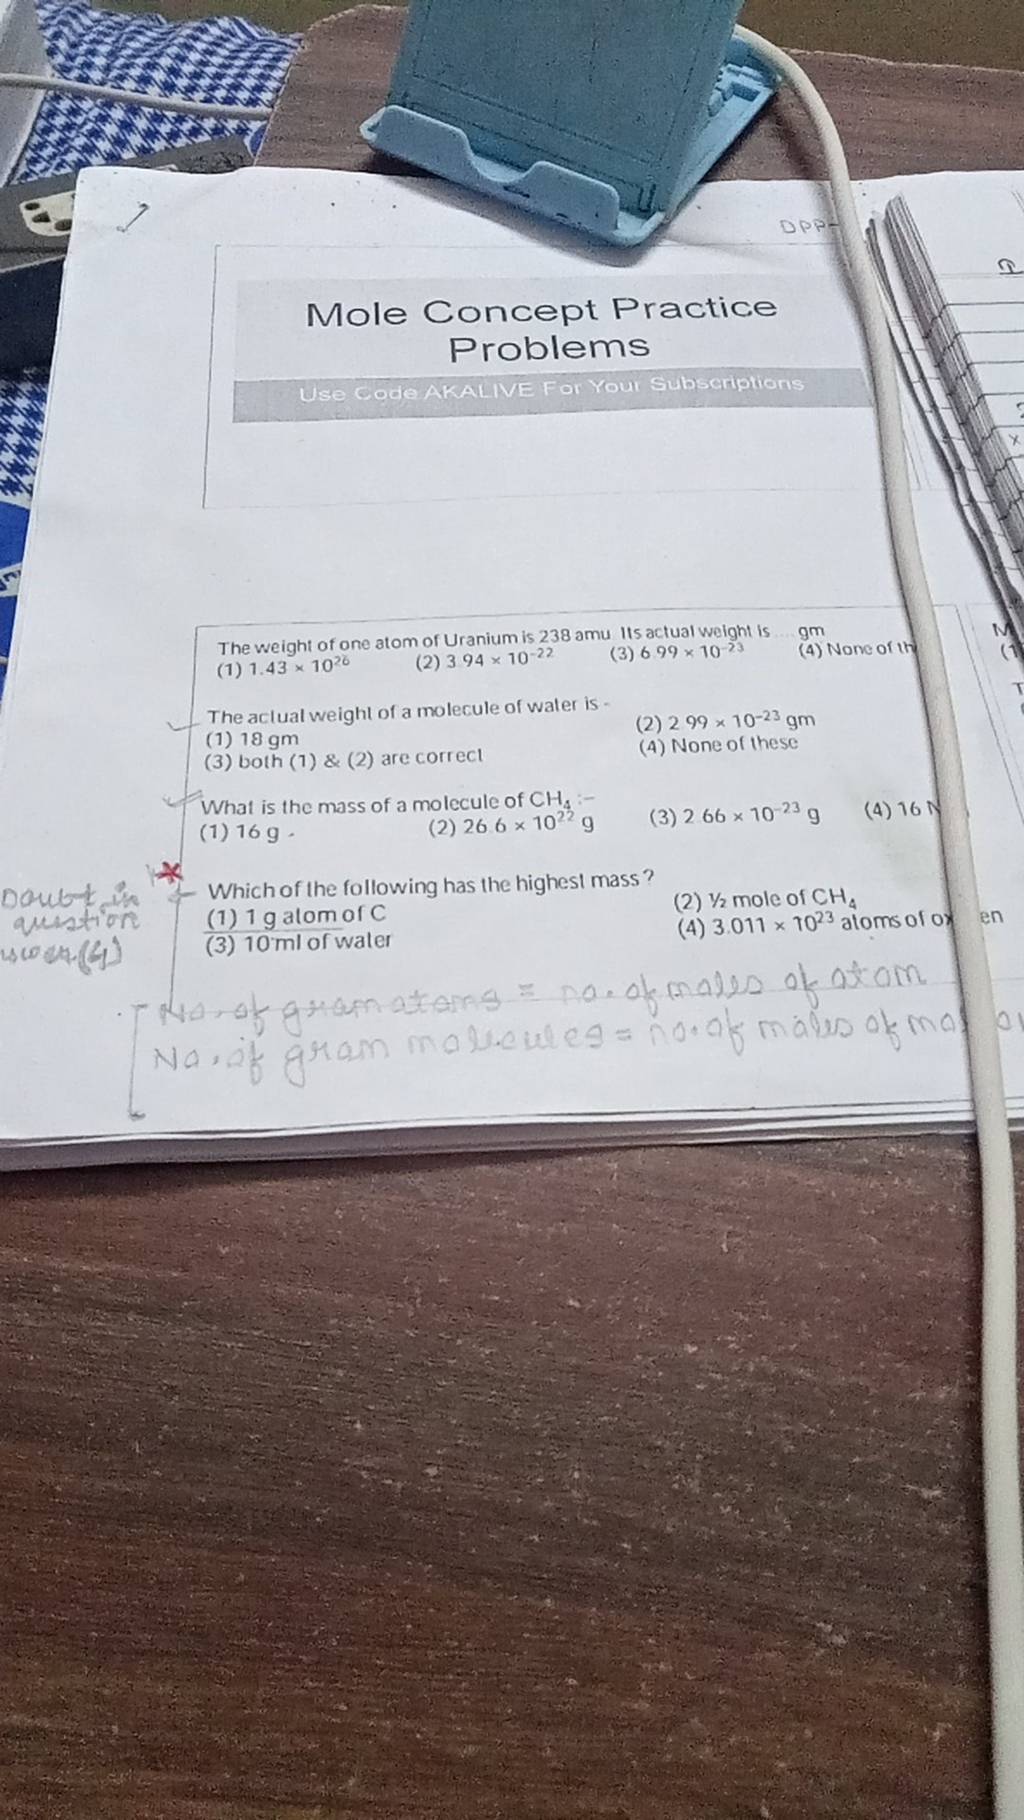 DPP-
Mole Concept Practice
Problems
Use Code AKALIVE For Your Subscriptions
The weight of one atom of Uranium is 238 amu. Its actual weight is .... gm
(1) 1.43 × 10²⁶ (2) 3.94 × 10⁻²² (3) 6.99 × 10⁻²³ (4) None of th
The actual weight of a molecule of water is -
(1) 18 gm (2) 2.99 × 10⁻²³ gm
(3) both (1) & (2) are correct (4) None of these
What is the mass of a molecule of CH₄ :-
(1) 16 g (2) 26.6 × 10²² g (3) 2.66 × 10⁻²³ g (4) 16 N
Which of the following has the highest mass ?
(1) 1 g atom of C (2) ½ mole of CH₄
(3) 10 ml of water (4) 3.011 × 10²³ atoms of ox en
Doubt in
question
(4)
No. of gram atoms = no. of moles of atom
No. of gram molecules = no. of moles of mo